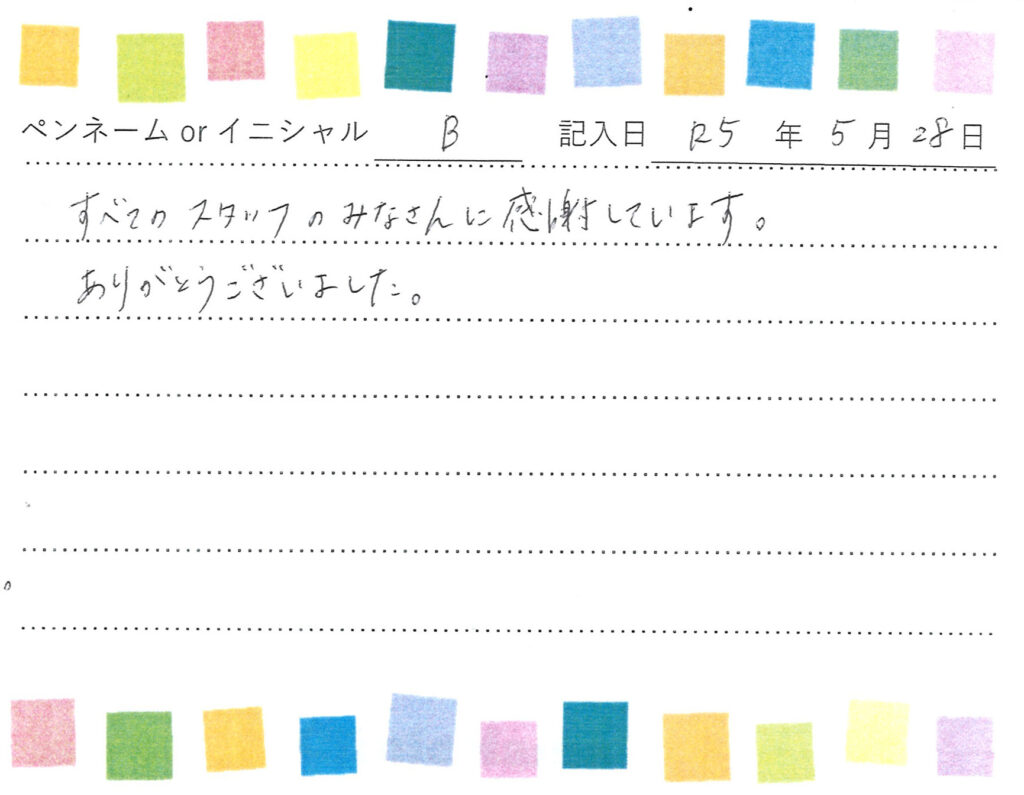 ペンネーム or イニシャル B 記入日 R5 年 5 月 28 日
すべての スタッフ の みなさんに 感謝しています。
ありがとうございました。